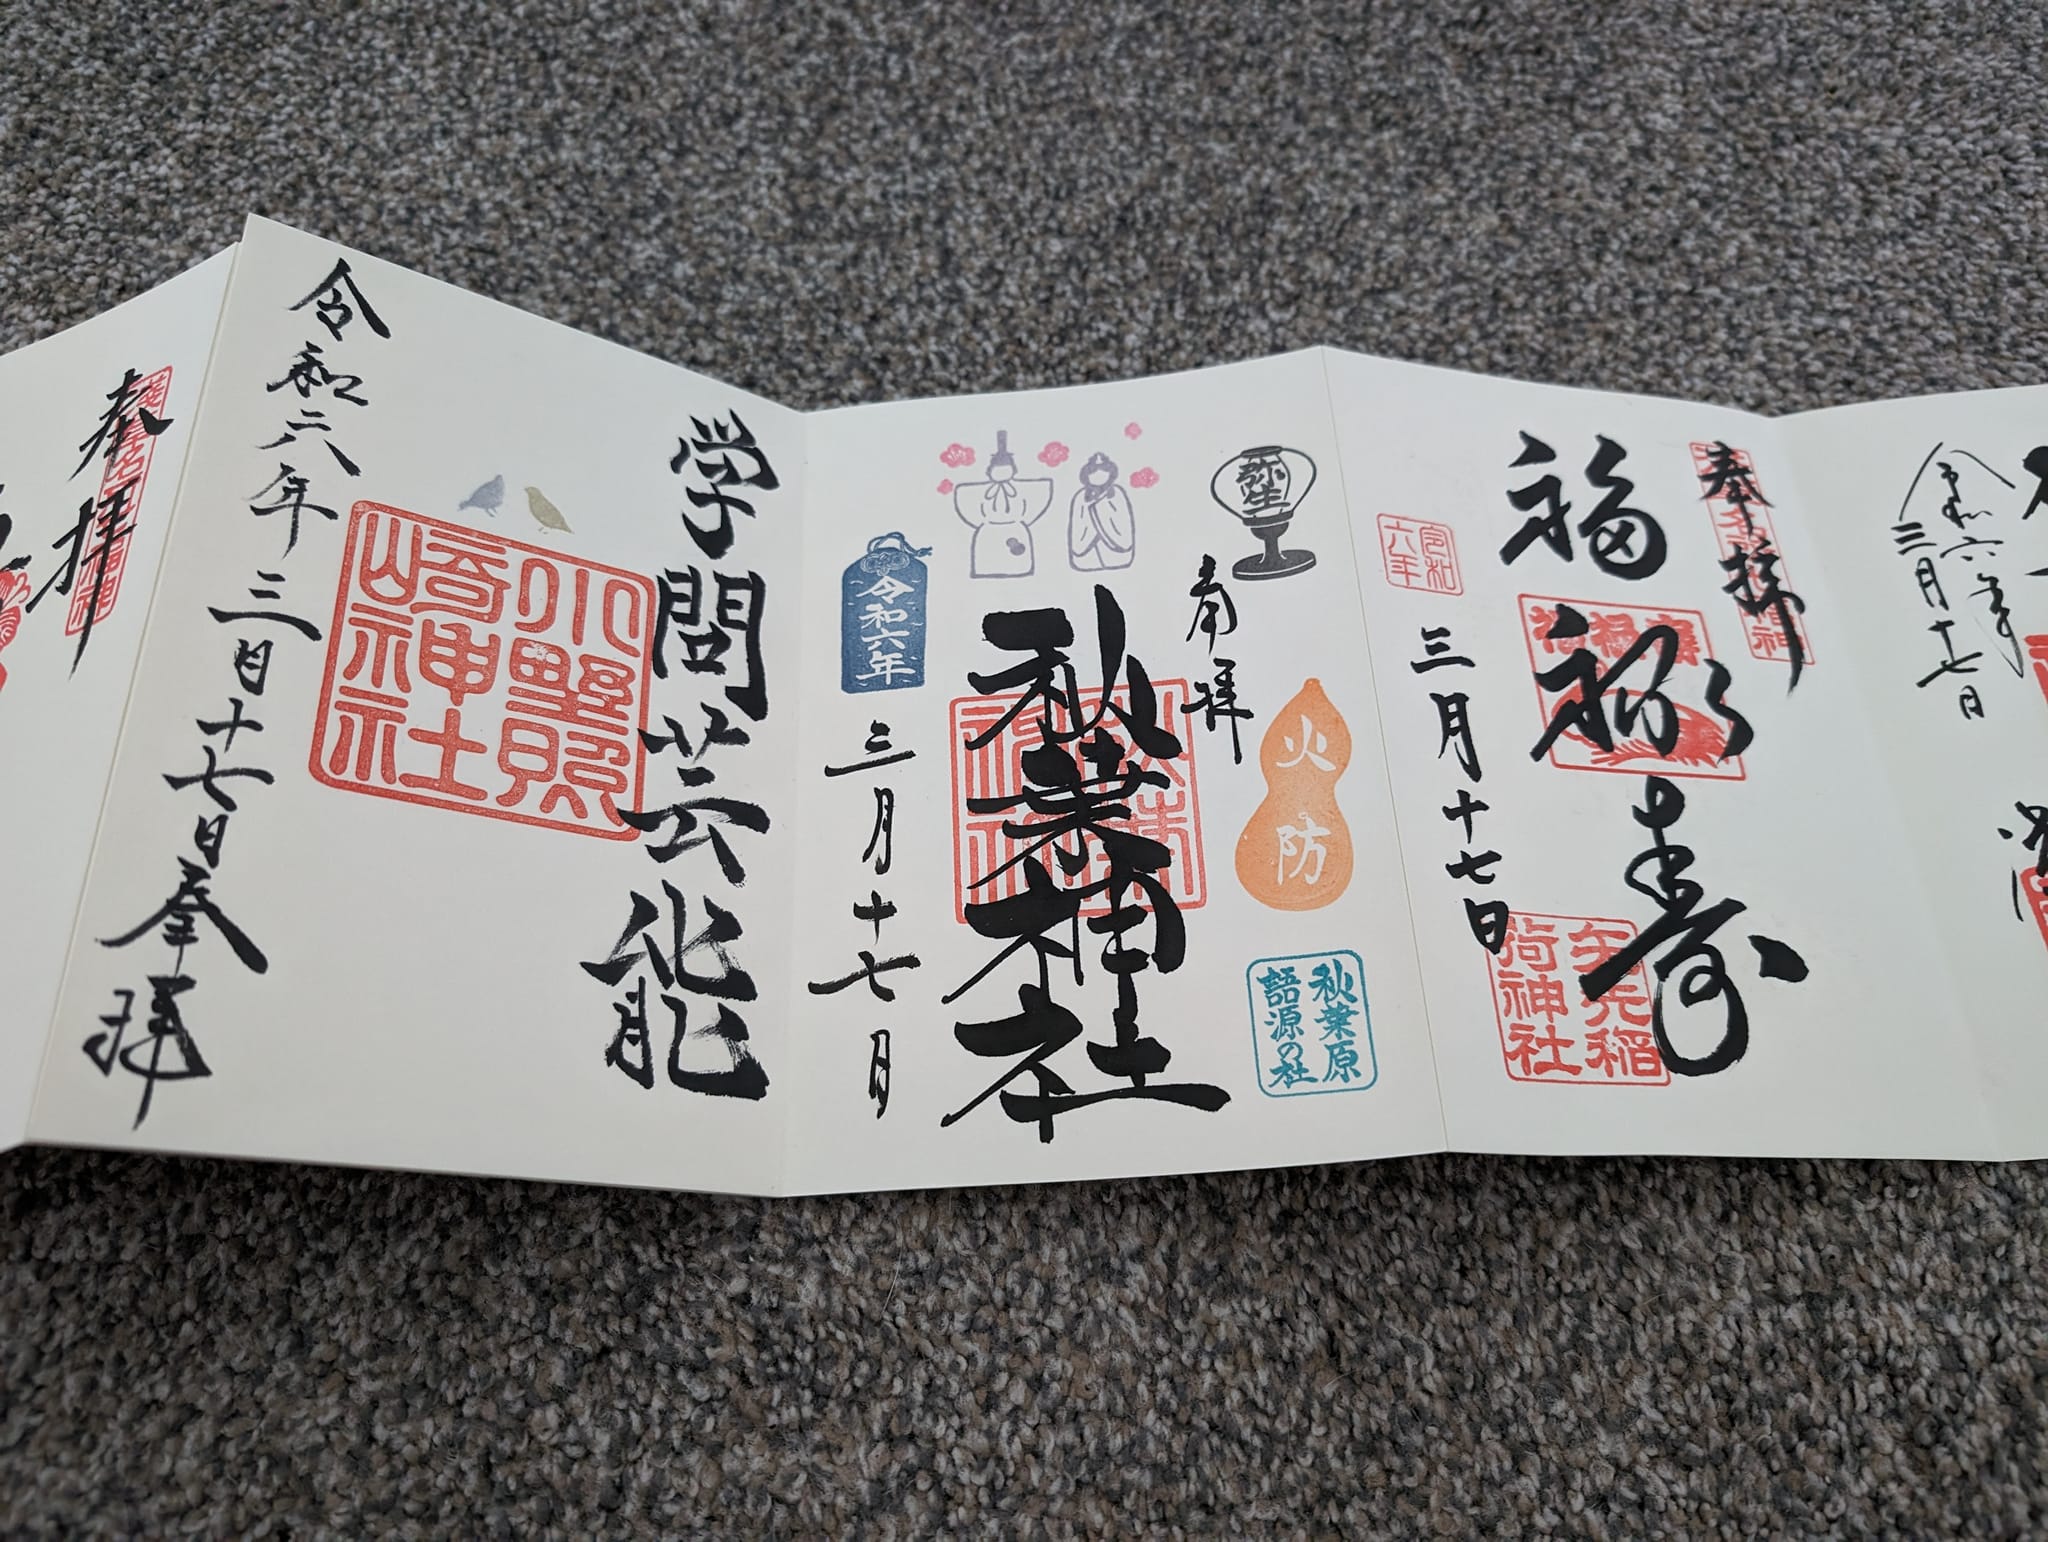 奉拝
令和六年
三月十七日
奉拝
福禄寿
令和
六年
三月十七日
矢先稲
荷神社
弥生
奉拝
火防
秋葉原
語源の社
秋葉神社
令和六年
三月十七日
学問芸能
小野照
崎神社
令和六年三月十七日奉拝
奉拝